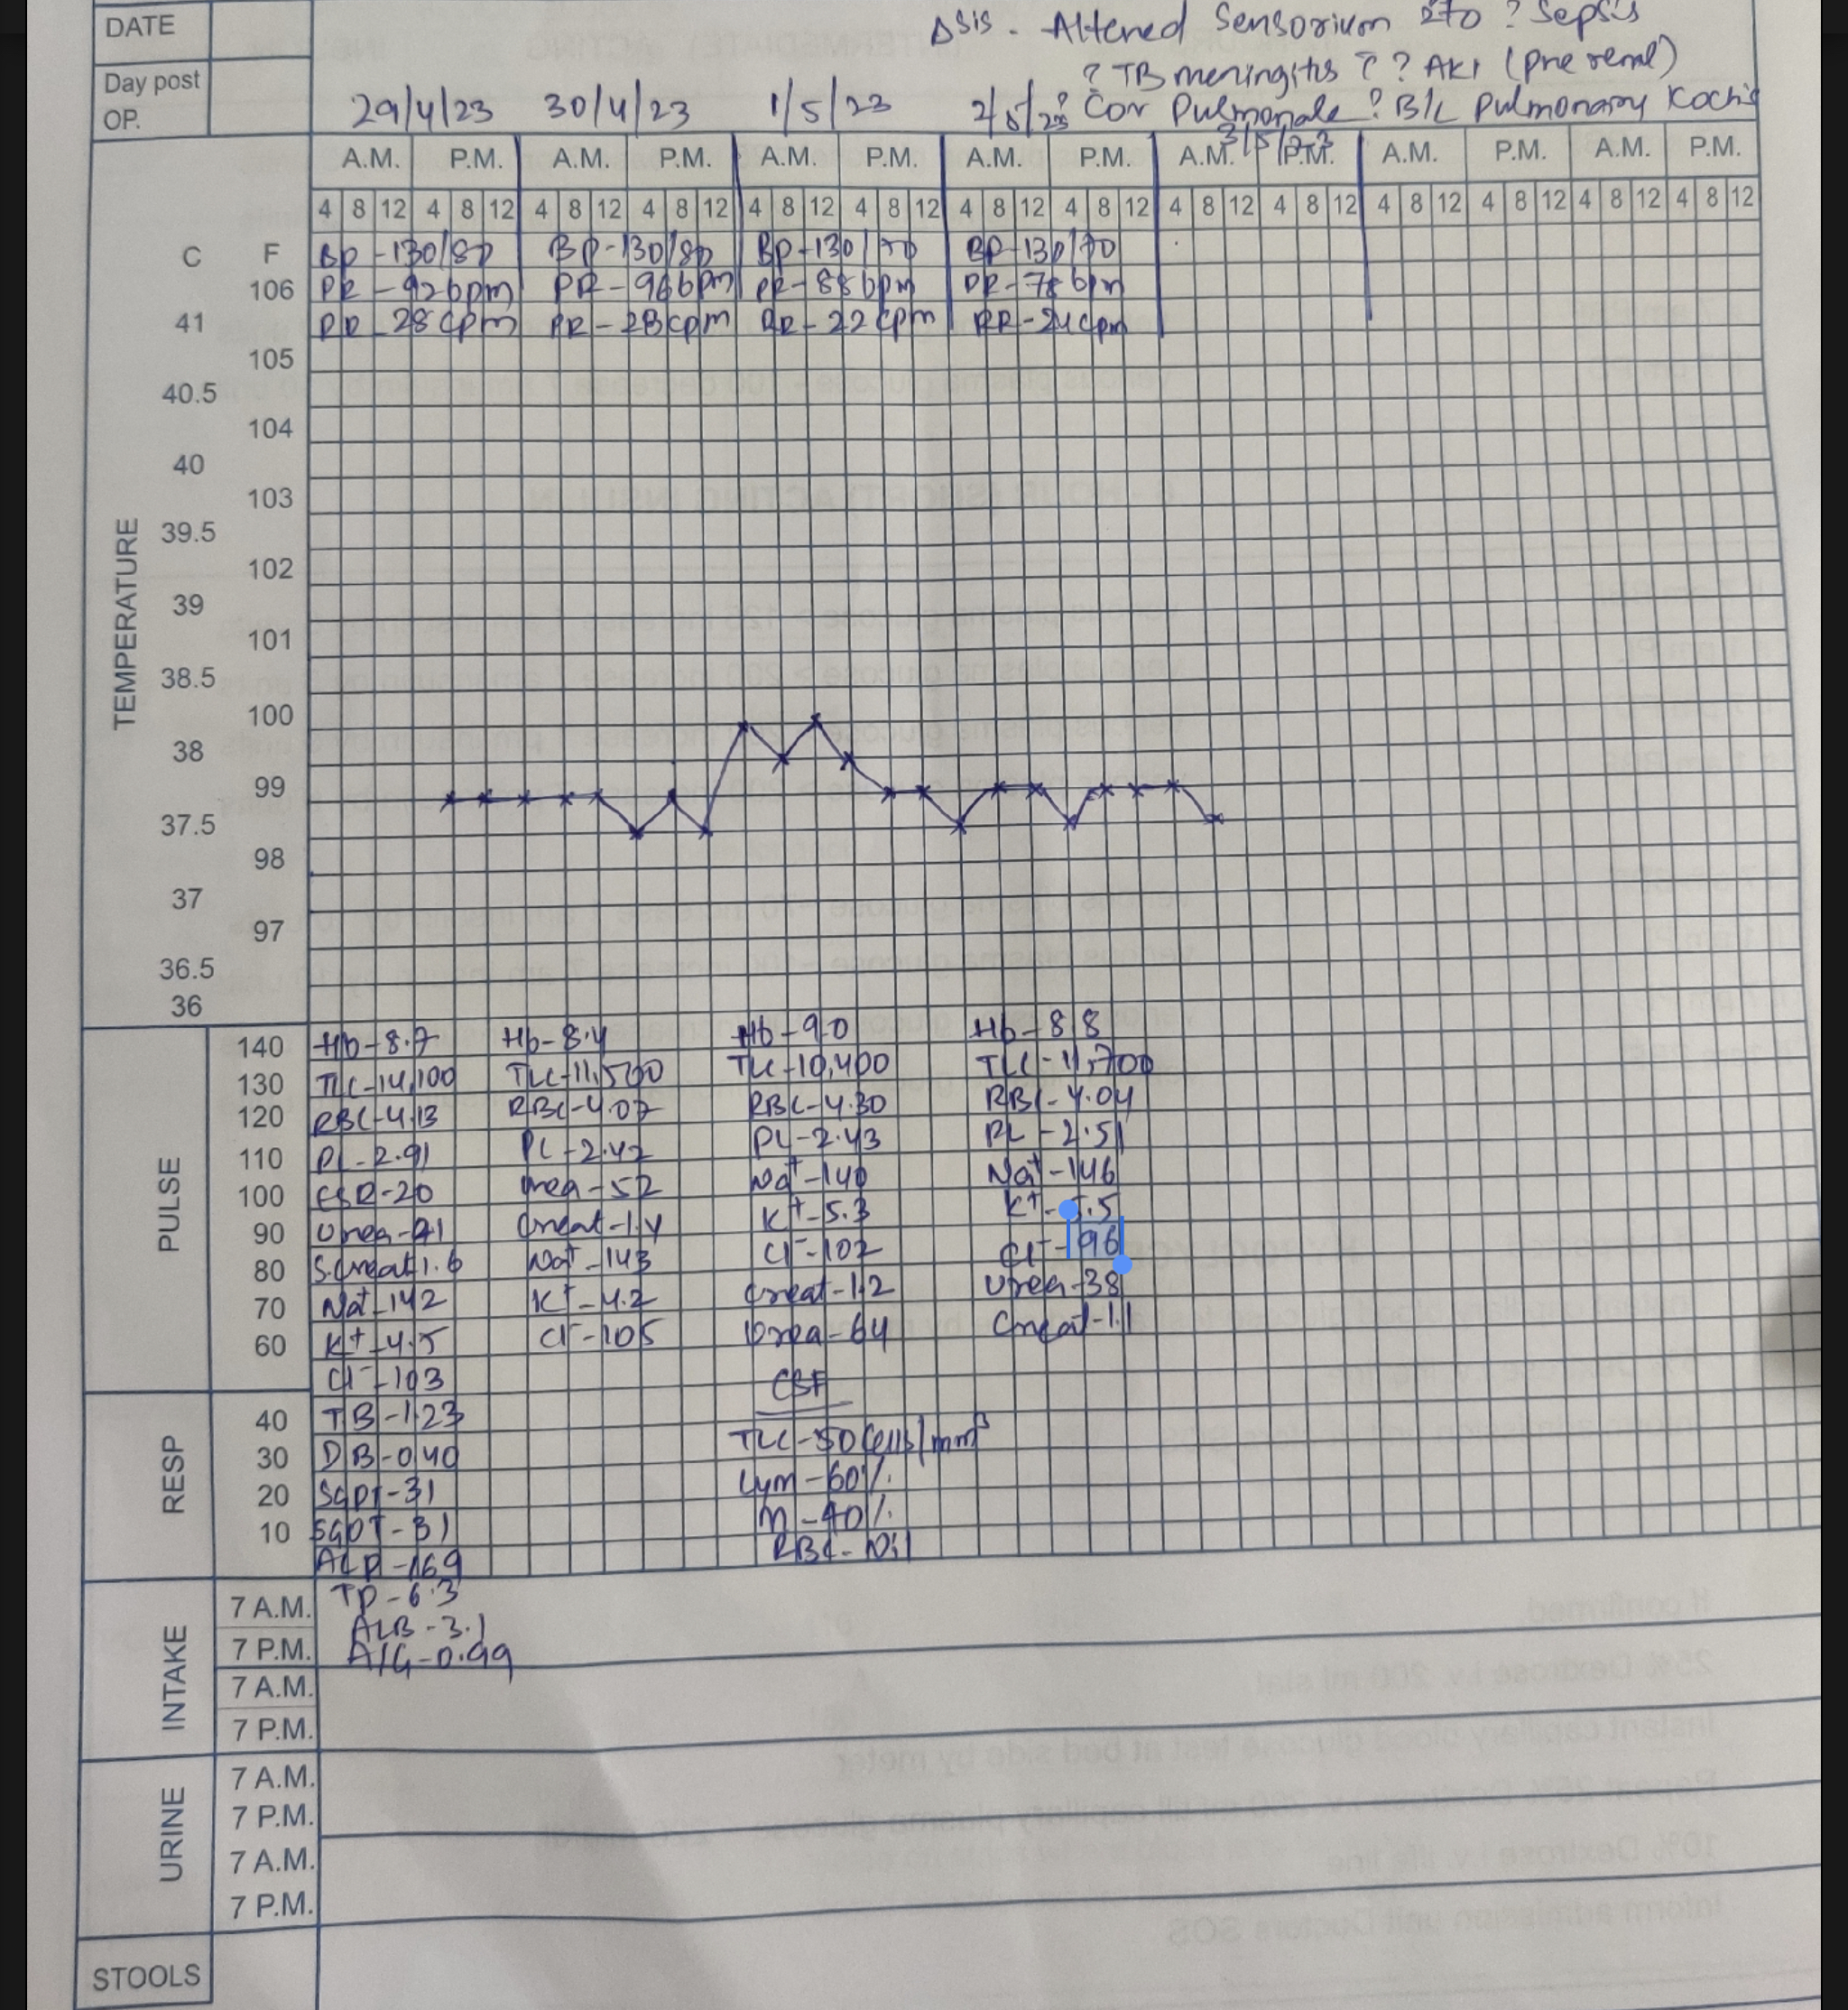 DATE
Δsis - Altered Sensorium 2to ? Sepsis
? TB meningitis c̄ ? AKI (Pre renal)
Day post OP.
29/4/23 30/4/23 1/5/23 2/5/23 ? Cor Pulmonale ? B/L Pulmonary Koch's
3/5/23
A.M. P.M. A.M. P.M. A.M. P.M. A.M. P.M. A.M. P.M. A.M. P.M. A.M. P.M.
4 8 12 4 8 12 4 8 12 4 8 12 4 8 12 4 8 12 4 8 12 4 8 12 4 8 12 4 8 12 4 8 12 4 8 12 4 8 12 4 8 12
C F BP-130/80 BP-130/80 BP-130/70 BP-130/70
106 PR-92bpm PR-96bpm PR-88bpm PR-78bpm
41 RR-28cpm RR-28cpm RR-22cpm RR-24cpm
105
40.5
104
40
103
39.5
102
39
101
38.5
100
38
99
37.5
98
37
97
36.5
36
TEMPERATURE
140 Hb-8.7 Hb-8.4 Hb-9.0 Hb-8.8
130 TLC-14,100 TLC-11,500 TLC-10,400 TLC-11,700
120 RBC-4.13 RBC-4.07 RBC-4.30 RBC-4.04
110 PL-2.91 PL-2.42 PL-2.43 PL-2.51
100 ESR-20 Urea-52 Na+-140 Na+-146
90 Urea- Creat-1.4 K+-5.3 K+-5.5
80 S.Creat 1.6 Na+-143 Cl--102 Cl--96
70 Na+-142 K+-4.2 Creat-1.2 Urea-38
60 K+-4.5 Cl--105 Urea-64 Creat-1.1
PULSE
Cl--103 CSF
40 TB-1.23
30 DB-0.40 TLC-50 Cells/mm3
20 SGPT-31 Lym-60%
10 SGOT-31 N-40%
ALP-169 RBC-Nil
RESP
7 A.M. TP-6.3
ALB-3.1
7 P.M. A/G-0.99
7 A.M.
7 P.M.
INTAKE
7 A.M.
7 P.M.
7 A.M.
7 P.M.
URINE
STOOLS